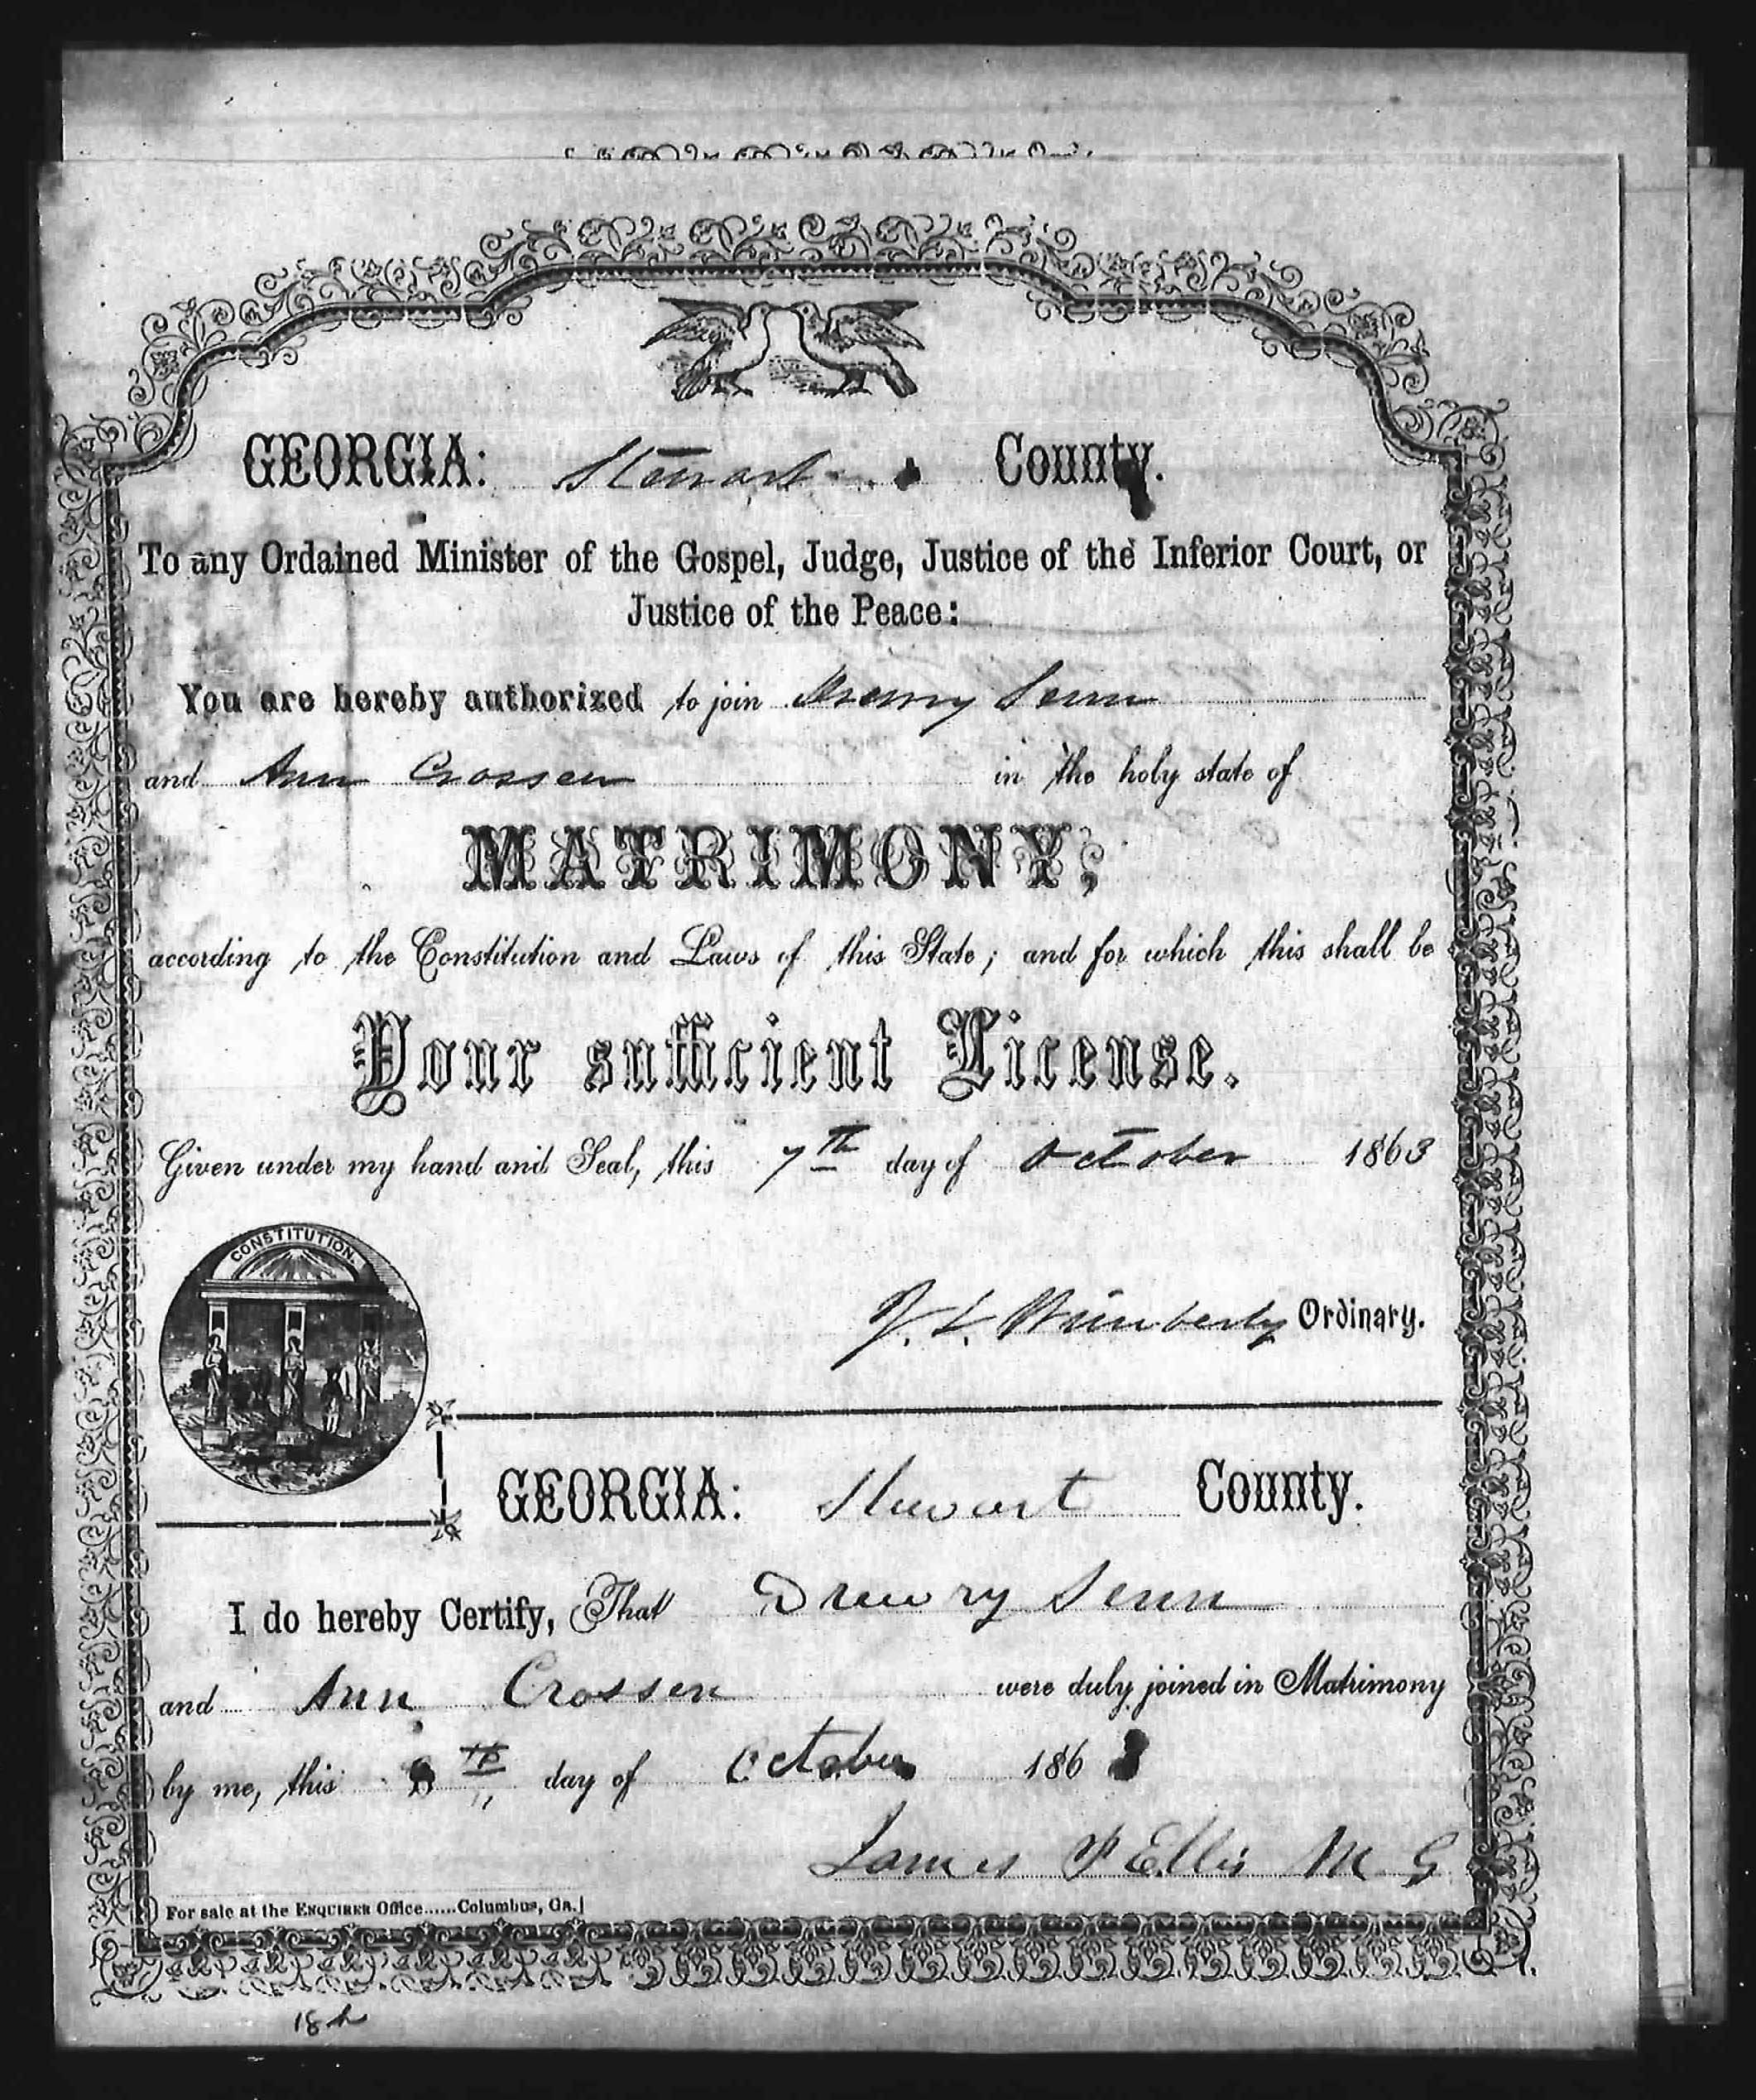 GEORGIA: Stewart County.
To any Ordained Minister of the Gospel, Judge, Justice of the Inferior Court, or
Justice of the Peace:
You are hereby authorized to join Drewry Senn
and Ann Crossen in the holy state of
MATRIMONY;
according to the Constitution and Laws of this State; and for which this shall be
Your sufficient License.
Given under my hand and Seal, this 7th day of October 1863
CONSTITUTION.
J. L. Wimberly Ordinary.
GEORGIA: Stewart County.
I do hereby Certify, That Drewry Senn
and Ann Crossen were duly joined in Matrimony
by me, this 8th day of October 1863
James P Ellis M G
For sale at the ENQUIRER Office......Columbus, Ga.]